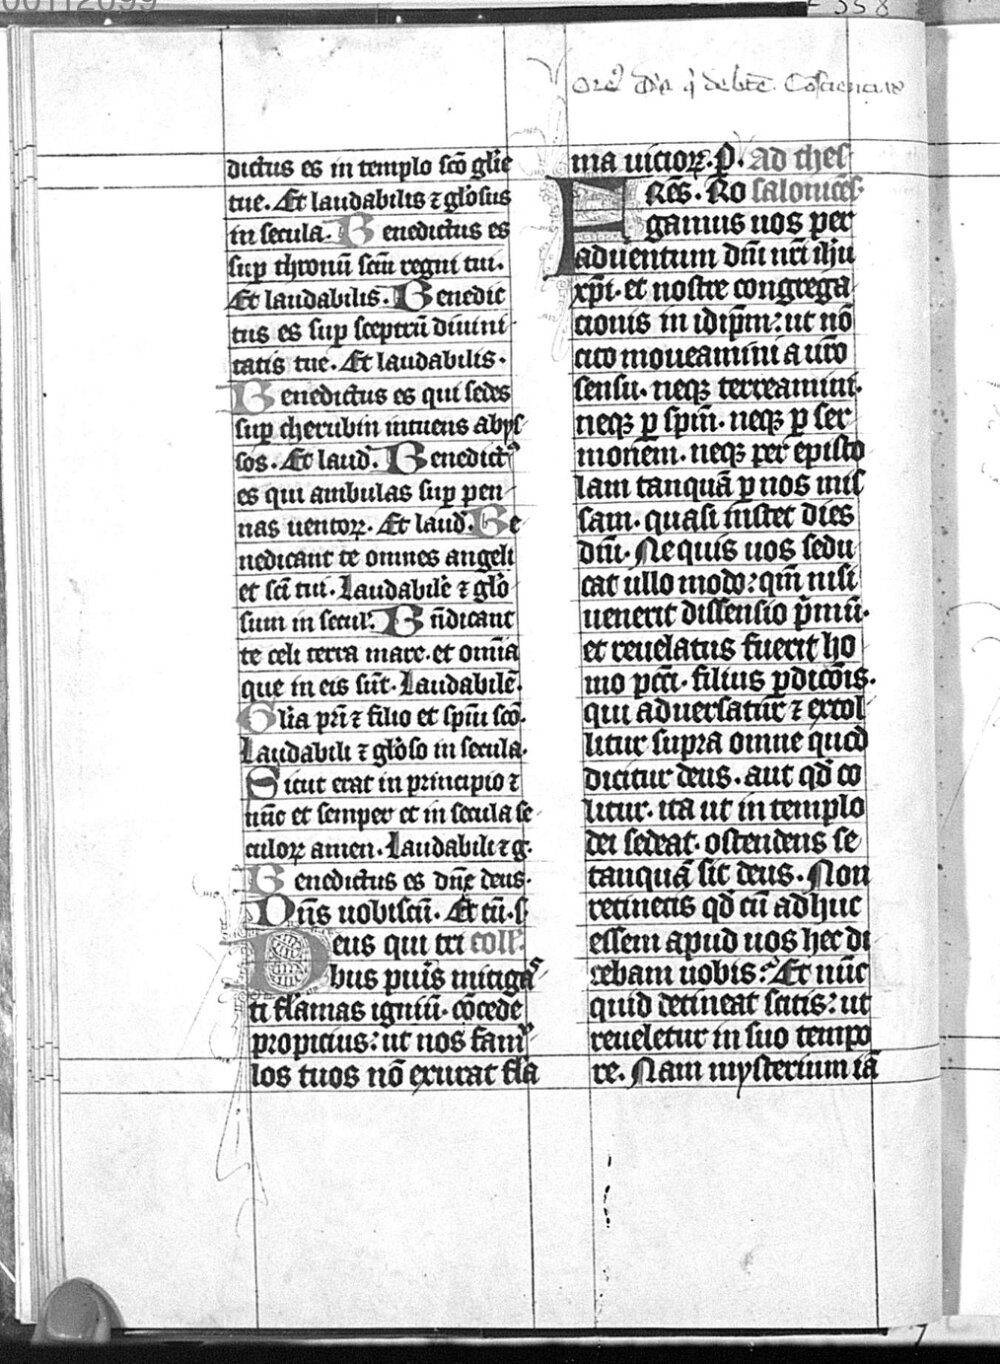 dictus es in templo scō glīe
tue. Et laudabilis ⁊ glōsus
in secula. Benedictus es
sup thronū scm̄ regni tui.
Et laudabilis. Benedic
tus es sup sceptrū diuini
tatis tue. Et laudabilis.
Benedictus es qui sedes
sup cherubin intuens abys
sos. Et laud. Benedictꝰ
es qui ambulas sup pen
nas uentoꝝ. Et laud. Be
nedicant te omnes angeli
et scī tui. Laudabilē ⁊ glō
sum in secul. Bn̄dicant
te celi terra mare. et om̄ia
que in eis sūt. Laudabilē.
Glīa pr̄i ⁊ filio et spīui scō.
Laudabili ⁊ glōso in secula.
Sicut erat in principio ⁊
nūc et semper et in secula se
culoꝝ amen. Laudabili ⁊ g.
Benedictus es dn̄e deus.
Dn̄s uobiscū. Et cū. s
Deus qui tri coll.
bus pueris mitigas
ti flāmas igniū. cōcede
propicius: ut nos famꝰ
los tuos nō exurat flā
ma uicioꝝ. P. ad thes
FRēs. Ro saloniceſ.
gamus uos per
aduentum dn̄i nr̄i ihū
xp̄i. et nostre congrega
cionis in idip̄m: ut nō
cito moueamini a ur̄o
sensu. neqꝫ terreamini.
neqꝫ ꝑ spm̄. neqꝫ ꝑ ser
monem. neqꝫ per episto
lam tanquā ꝑ nos mis
sam. quasi instet dies
dn̄i. Ne quis uos sedu
cat ullo modo: qm̄ nisi
uenerit dissensio p̄mū.
et reuelatus fuerit ho
mo pcc̄i. filius ꝑdicōis.
qui aduersatur ⁊ extol
litur supra omne quod
dicitur deus. aut qd̄ co
litur. ita ut in templo
dei sedeat. ostendens se
tanquā sit deus. Non
retinetis qd̄ cū adhuc
essem apud uos hec di
cebam uobis? Et nūc
quid detineat scitis: ut
reueletur in suo tempo
re. Nam mysterium iā